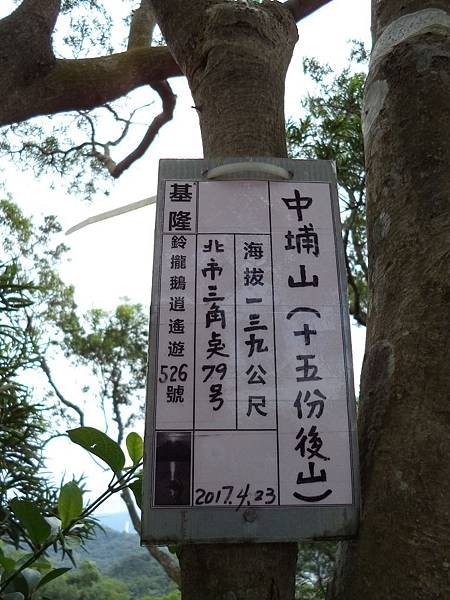 中埔山(十五份後山)
海拔一三九公尺
北市三角点79号
2017.4.23
基隆
鈴攏鵝逍遙遊
526號